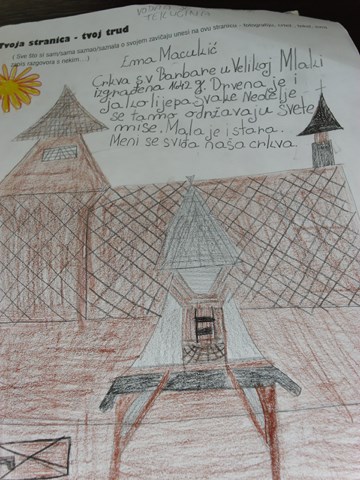 TEKUĆINA
Tvoja stranica - tvoj trud
( Sve što si sam/sama saznao/saznala o svojem zavičaju unesi na ovu stranicu - fotografiju, crtež,
zapis razgovora s nekim... )
Ema Macukić
Crkva sv Barbare u Velikoj Mlaki
izgrađena 1642 g. Drvena je i
jako lijepa svake Nedelje
se tamo održavaju svete
mise. Mala je i stara.
Meni se sviđa naša crkva.